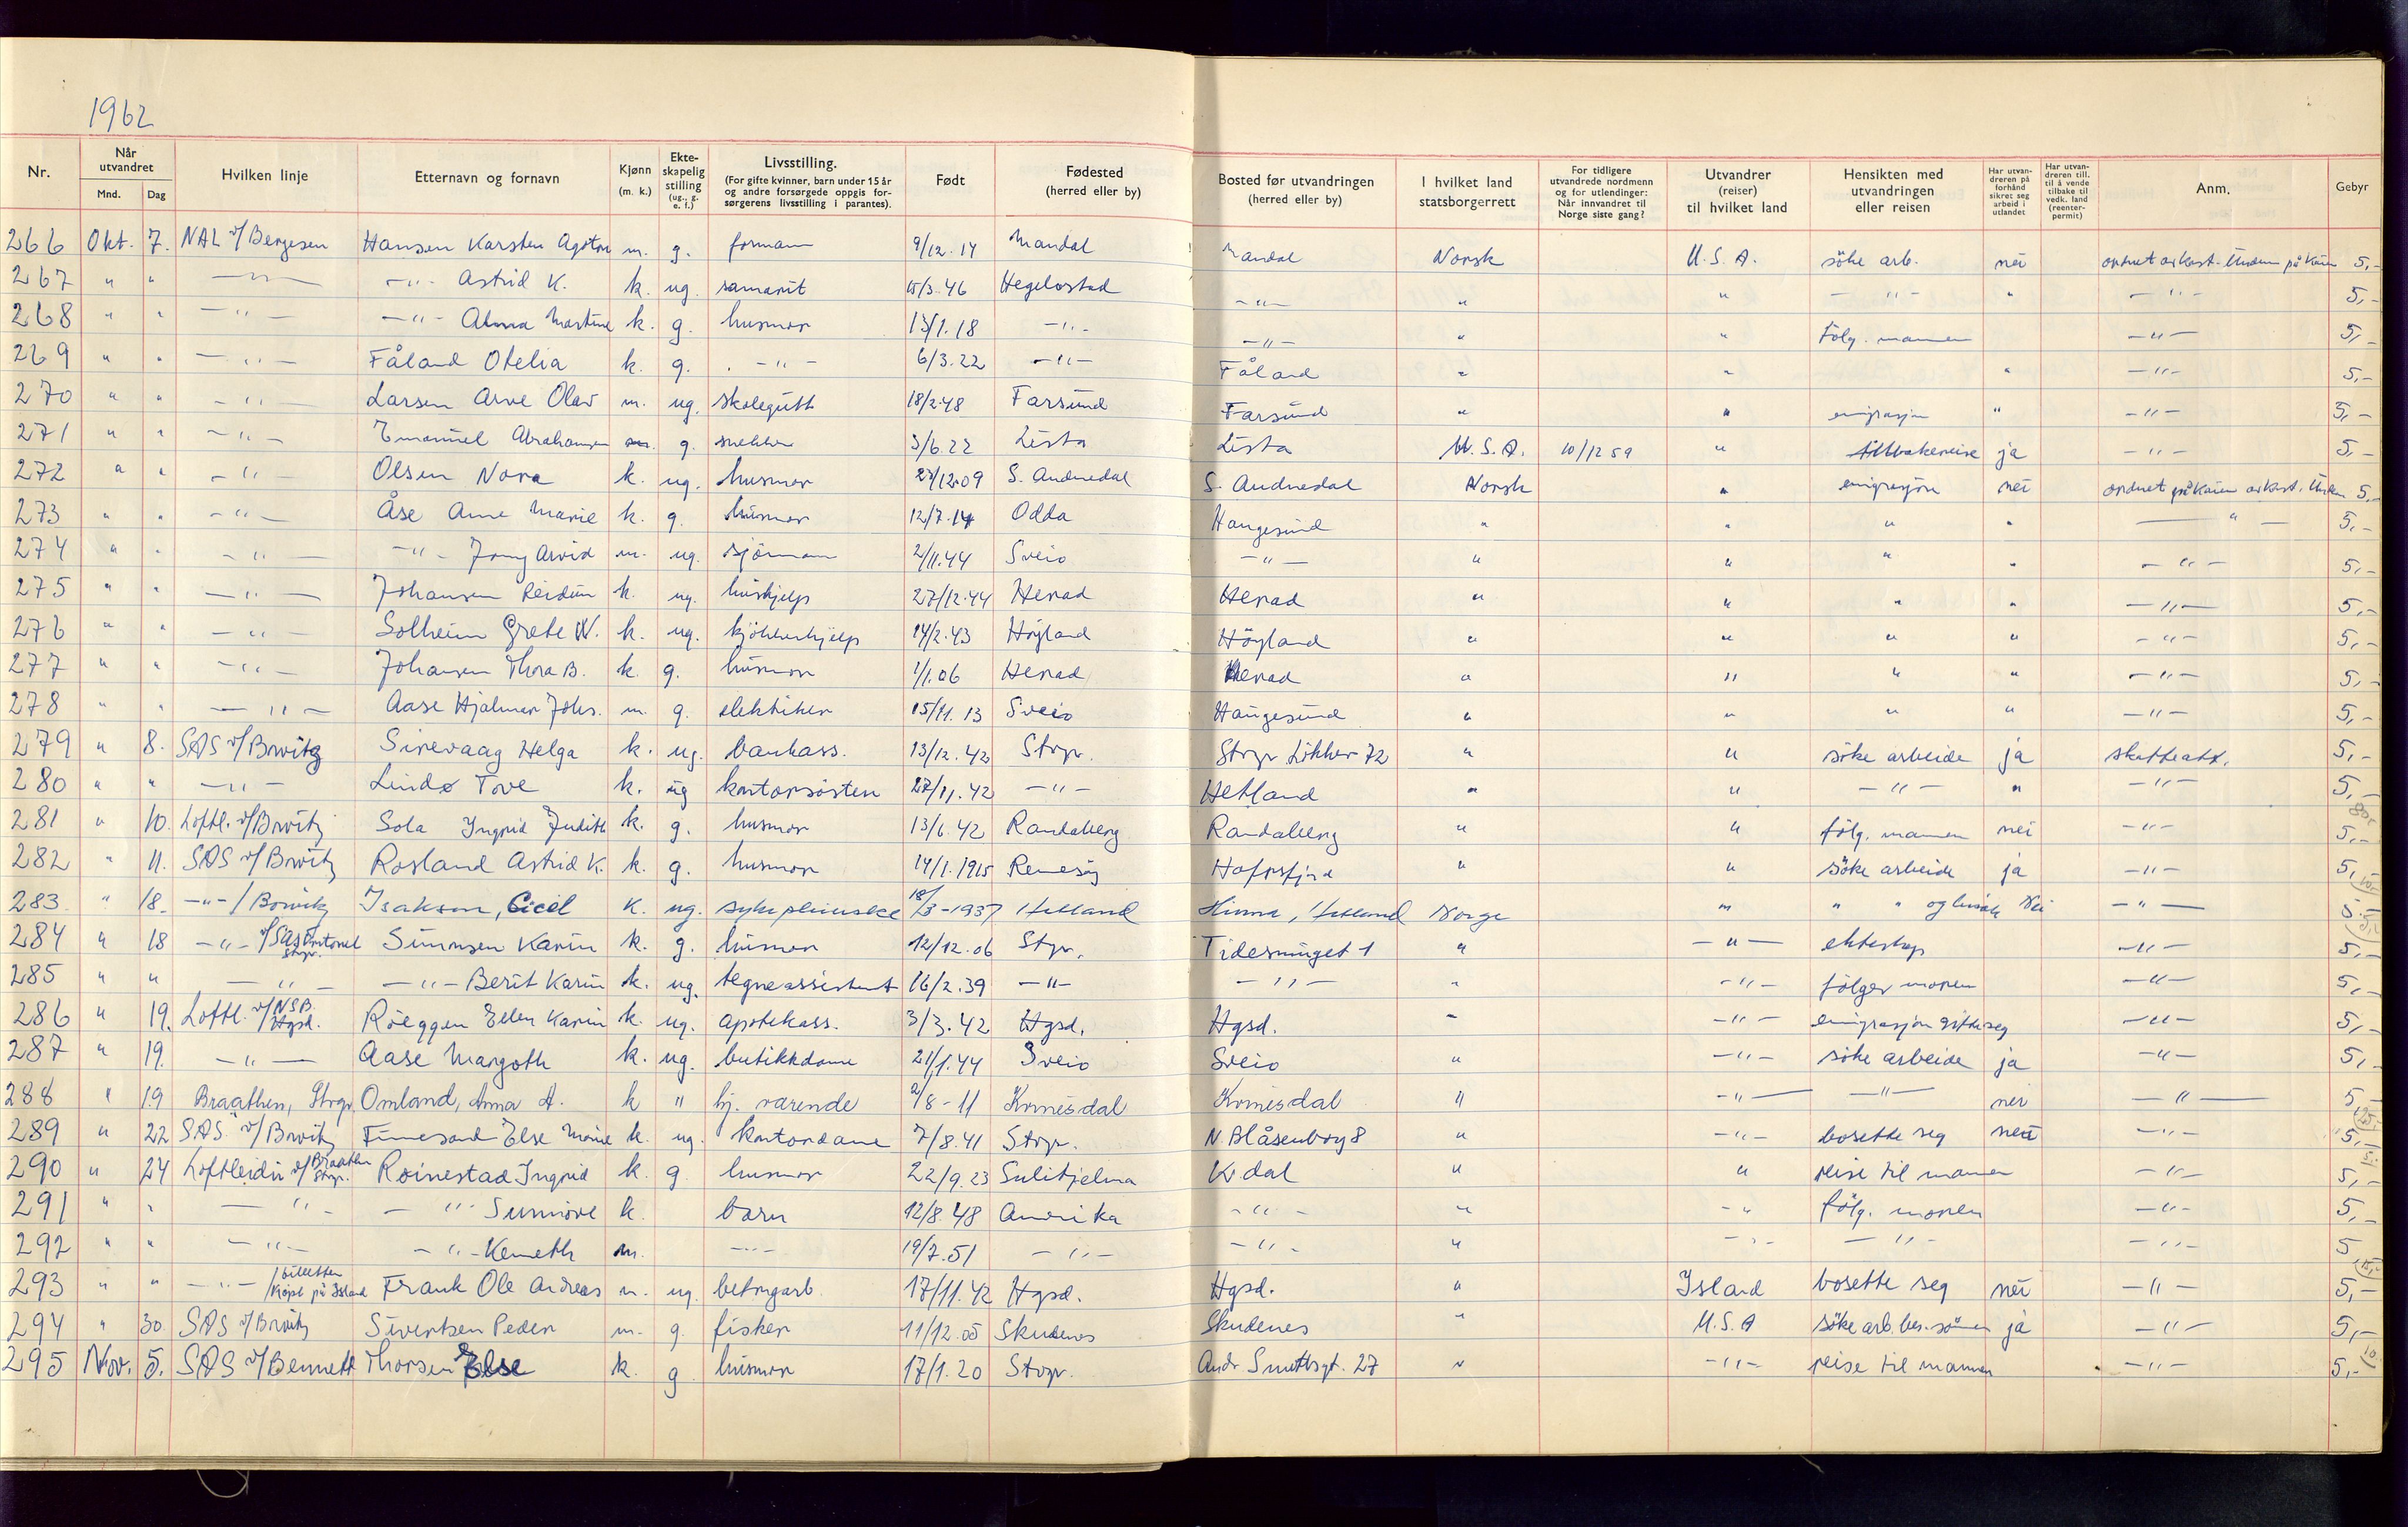 1962
Nr. Når utvandret Mnd. Dag Hvilken linje Etternavn og fornavn Kjønn (m. k.) Ekte-skapelig stilling (ug., g. e. f.) Livsstilling. (For gifte kvinner, barn under 15 år og andre forsørgede oppgis for-sørgerens livsstilling i parantes). Født Fødested (herred eller by) Bosted før utvandringen (herred eller by) I hvilket land statsborgerrett For tidligere utvandrede nordmenn og for utlendinger: Når innvandret til Norge siste gang? Utvandrer (reiser) til hvilket land Hensikten med utvandringen eller reisen Har utvan-dreren på forhånd sikret seg arbeid i utlandet Har utvan-dreren till. til å vende tilbake til vedk. land (reenter-permit) Anm. Gebyr
266 Okt. 7. NAL v/Bergesen Hansen Karsten m. g. formann 9/12.14 Mandal Mandal Norsk U.S.A. söke arb. nei 5,-
267 " " -"- -"- Astrid K. k. ug. samarit 15/3.46 -"- " " -"- " -"- 5,-
268 " " -"- -"- Martine k. g. husmor 13/1.18 -"- -"- " " Fölg. mannen -"- 5,-
269 " " -"- Fåland Otelia k. g. -"- 6/3.22 -"- Fåland " " " -"- 5,-
270 " " -"- Larsen Arve Olav m. ug. skolegutt 18/2.48 Farsund Farsund " " emigrasjon " -"- 5,-
271 " " -"- Emanuel Abrahamsen m. g. snekker 3/6.22 Lista Lista U.S.A. 10/12 59 " tilbakereise ja -"- 5,-
272 " " -"- Olsen Nora k. ug. husmor 27/12.09 S. Audnedal S. Audnedal Norsk " emigrasjon nei 5,-
273 " " -"- Åse Anne Marie k. g. husmor 12/7.14 Odda Haugesund " " " " -"- 5,-
274 " " -"- -"- Arvid m. ug. sjömann 2/11.44 Sveio -"- " " " " -"- 5,-
275 " " -"- Johansen Reidun k. ug. hushjelp 27/12.44 Herad Herad " " " " -"- 5,-
276 " " -"- Solheim Grete W. k. ug. kjökkenhjelp 14/2.43 Höyland Höyland " " " " -"- 5,-
277 " " -"- Johansen Thora B. k. g. husmor 1/1.06 Herad Herad " " " " -"- 5,-
278 " " -"- Aase Hjalmar Johs. m. g. elektriker 15/11.13 Sveio Haugesund " " " " -"- 5,-
279 " 8. SAS v/Bowitz Sirevaag Helga k. ug. bankass. 13/12.42 Stvgr. Stvgr Lökkev 72 " " söke arbeide ja skatteatt. 5,-
280 " " -"- Lindø Tove k. ug kontorsösten 27/11.42 -"- Hetland " " -"- " -"- 5,-
281 " 10. Loftl. v/Bowitz Sola Ingrid Judith k. g. husmor 13/6.42 Randaberg Randaberg " " fölg. mannen nei -"- 5,-
282 " 11. SAS v/Bowitz Rosland Astrid K. k. g. husmor 14/1.1915 Rennesöy Hafrsfjord " " söke arbeide ja -"- 5,-
283 " 18. -"-/Bowitz Isaksen, Cicel K. ug. sykepleierske 18/3-1937 Hetland Hinna, Hetland Norge " " " og besök Nei -"- 5,-
284 " 18 -"- Simonsen Karin k. g. husmor 12/12.06 Stvgr. 1 " -"- ekteskap -"- 5,-
285 " " -"- -"- Berit Karin k. ug. tegneassistent 16/2.39 -"- -"- " -"- fölger moren -"- 5,-
286 " 19. Loftl. v/NSB. Hgsd. Röeggen Ellen Karin k. ug. apotekass. 3/3.42 Hgsd. Hgsd. " -"- emigrasjon gifte seg -"- 5,-
287 " 19. -"- Aase Margoth k. ug. butikkdame 21/1.44 Sveio Sveio " -"- söke arbeide ja -"- 5,-
288 " 19 Braathen, Stvgr. Omland, Anna A. k " hj. værende 2/8-11 Kvinesdal Kvinesdal " -"- -"- nei -"- 5,-
289 " 22 SAS v/Bowitz Finnesand Else Marie k. ug. kontordame 7/8.41 Stvgr. N. Blåsenborg 8 " -"- bosette seg nei -"- 5,-
290 " 24 Loftleidir v/Braathen Stvgr. Röinestad Ingrid k. g husmor 22/9.23 Sulitjelma Kv dal " " reise til mannen -"- 5,-
291 " " -"- -"- Sunnöve k. barn 12/8.48 Amerika -"- " -"- fölg. moren -"- 5,-
292 " " -"- -"- Kenneth m. -"- 19/7.51 -"- -"- " -"- -"- -"- 5
293 " " -"- /billetten kjöpt på Island Frank Ole Andreas m. ug. betongarb. 17/11.42 Hgsd. Hgsd. " Island bosette seg nei -"- 5,-
294 " 30. SAS v/Bowitz Sivertsen Peder m. g. fisker 11/12.05 Skudenes Skudenes " U.S.A söke arb. ja -"- 5,-
295 Nov. 5. SAS v/Bennett Thorsen Else k. g husmor 17/1.20 Stvgr. 27 " -"- reise til mannen -"- 5,-